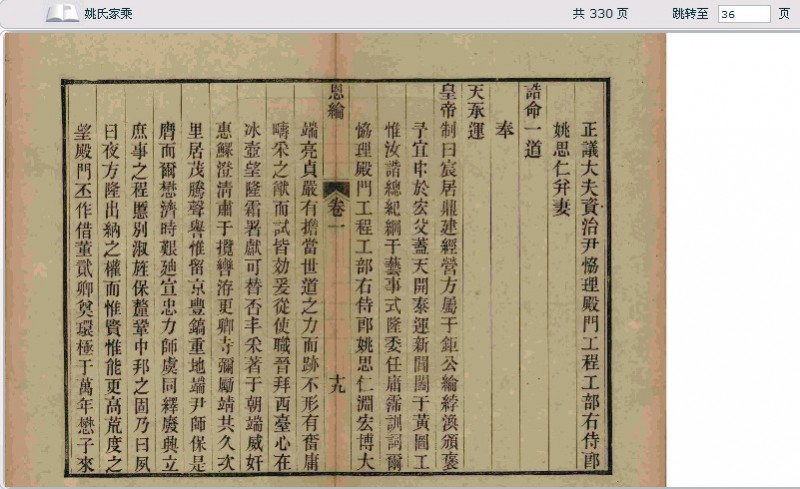 姚氏家乘 共 330 页 跳转至 36 页
正議大夫資治尹恊理殿門工程工部右侍郎
姚思仁并妻
誥命一道
奉
天承運
皇帝制曰宸居鼎建經營方屬于鉅公綸綍渙頒褒
予宜申於宏父蓋天開泰運新閶闔于黃圖工
惟汝諧總紀綱于藝事式隆委任庸霈訓詞爾
恊理殿門工程工部右侍郎姚思仁淵宏博大
恩綸 卷一 十九
端亮貞嚴有擔當世道之力而跡不形有奮庸
疇采之猷而試皆効爰從使職晉拜西臺心在
冰壺望隆霜署獻可替否丰采著于朝端威奸
惠鰥澄清肅于攬轡洊更卿寺彌勵靖共久次
里居茂騰聲譽惟留京豐鎬重地端尹師保是
膺而爾懋濟時艱廸宣忠力師虞同繹廢興立
庶事之程慝別淑旌保釐鞏中邦之固乃曰夙
曰夜方隆出納之權而惟賢惟能更高荒度之
望殿門丕作借董貳卿奐環極于萬年懋子來